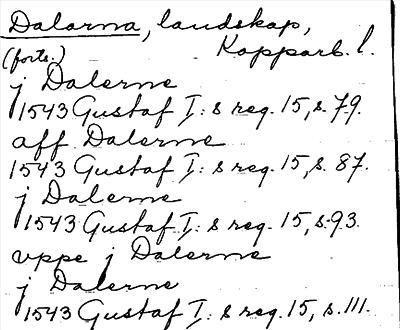 Dalarna, landskap,
(forts.) Kopparb. l.
j Dalerne
1543 Gustaf I:s reg. 15, s. 79.
aff Dalerne
1543 Gustaf I:s reg. 15, s. 87.
j Dalerne
1543 Gustaf I:s reg. 15, s. 93.
vppe j Dalerne
j Dalerne
1543 Gustaf I:s reg. 15, s. 111.